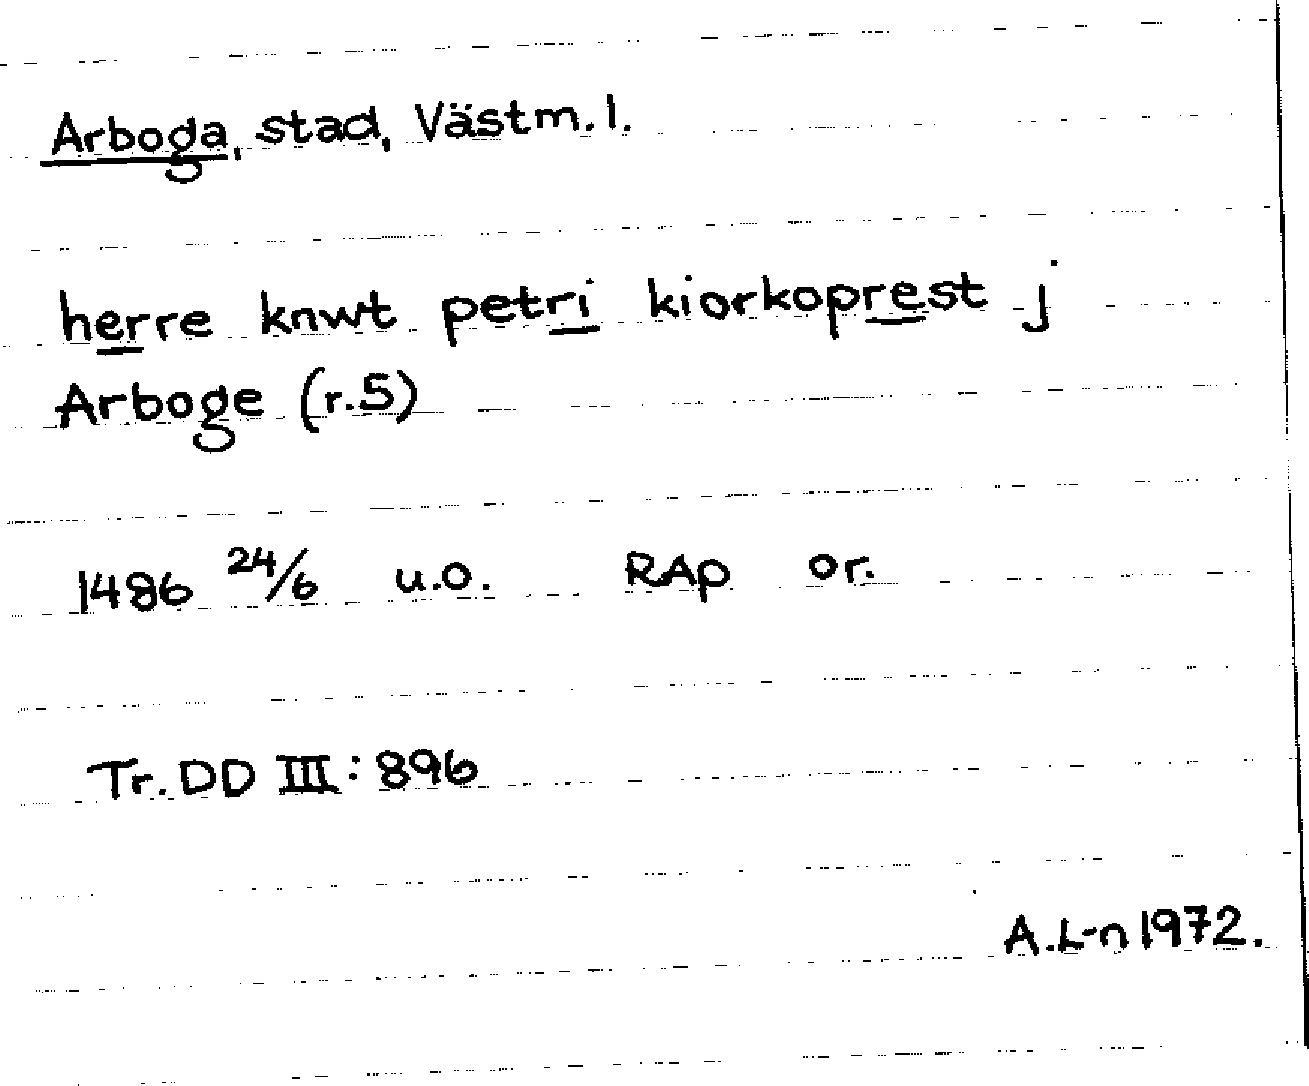 Arboga, stad, Västm. l.
herre knwt petri kiorkoprest j
Arboge (r.5)
1486 24/6 u.o. RAp or.
Tr. DD III: 896
A.L-n 1972.